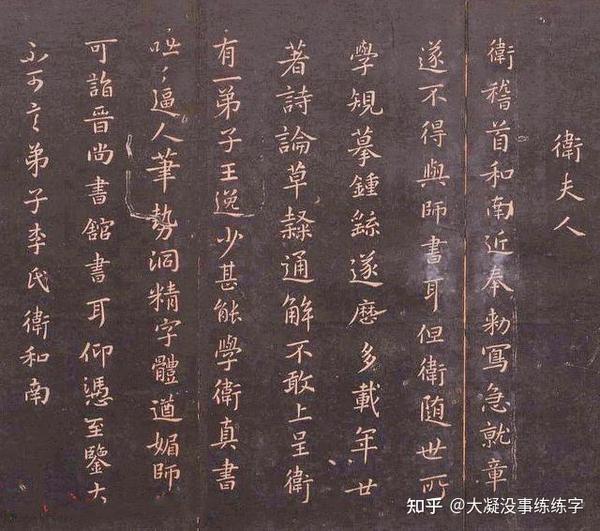 衛夫人
衛稽首和南近奉勅寫急就章
遂不得與師書耳但衛随世所
學規摹鍾繇遂歷多載年廿
著詩論草隸通解不敢上呈衛
有一弟子王逸少甚能學衛真書
咄〻逼人筆勢洞精字體遒媚師
可詣晉尚書館書耳仰憑至鑒大
不可言弟子李氏衛和南
知乎 @大凝没事练练字